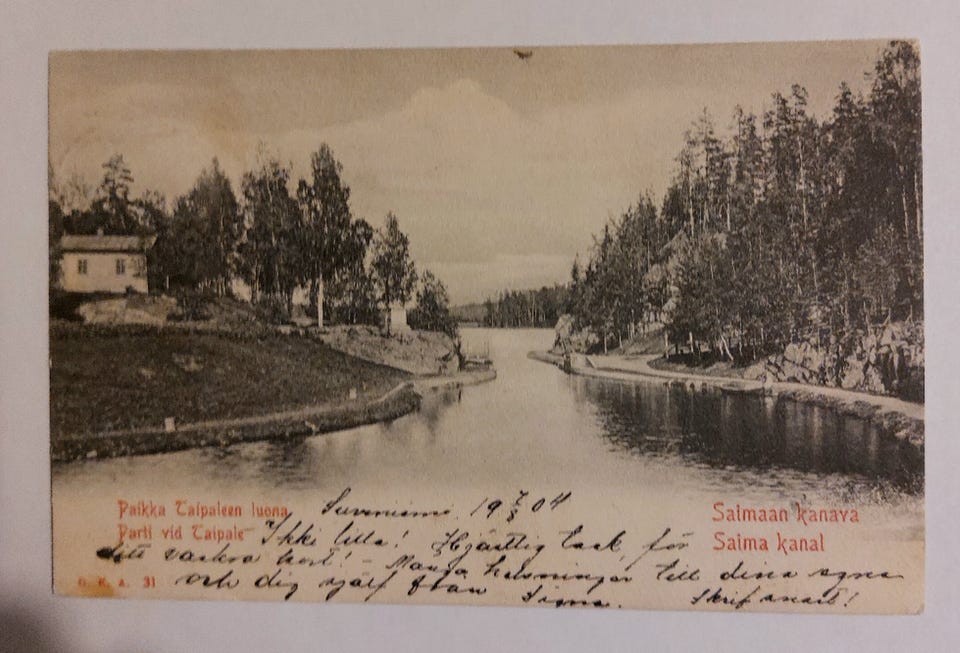 Paikka Taipaleen luona
Parti vid Taipale
Saimaan kanava
Saima kanal
19 7/8 04
Ikki lilla! Hjärtlig tack för
ditt vackra kort! - Många helsningar till dina egna
och dig sjelf från Signe. Skrif snart!
O. K. A. 31